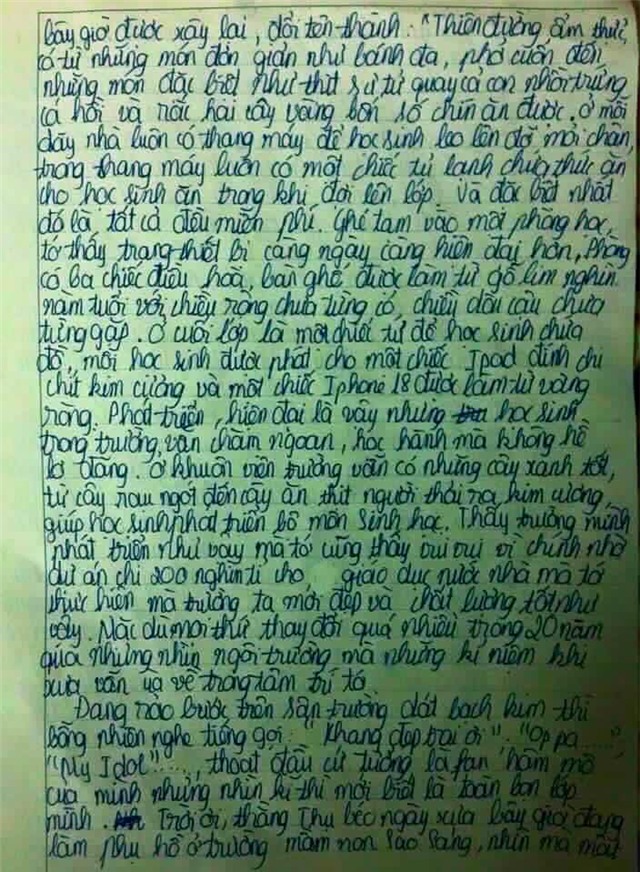 bây giờ được xây lại, đổi tên thành: "Thiên đường ẩm thực,
có từ những món đơn giản như bánh đa, phở cuốn đến
những món đặc biệt như thịt sư tử quay cả con nhồi trứng
cá hồi và rắc hai cây vàng bốn số chín ăn được. Ở mỗi
dãy nhà luôn có thang máy để học sinh leo lên đỡ mỏi chân,
trong thang máy luôn có một chiếc tủ lạnh chứa thức ăn
cho học sinh ăn trong khi đợi lên lớp. Và đặc biệt nhất
đó là tất cả đều miễn phí. Ghé tạm vào một phòng học,
tớ thấy trang thiết bị càng ngày càng hiện đại hơn, phòng
có ba chiếc điều hoà, bàn ghế được làm từ gỗ lim nghìn
năm tuổi với chiều rộng chưa từng có, chiều dài cậu chưa
từng gặp. Ở cuối lớp là một chiếc tủ để học sinh chứa
đồ, mỗi học sinh được phát cho một chiếc Ipad đính chi
chít kim cương và một chiếc Iphone 18 được làm từ vàng
ròng. Phát triển, hiện đại là vậy nhưng học sinh
trong trường vẫn chăm ngoan, học hành mà không hề
lơ đãng. Ở khuôn viên trường vẫn có những cây xanh tốt,
từ cây rau ngót đến cây ăn thịt người thải ra kim cương,
giúp học sinh phát triển bộ môn sinh học. Thấy trường mình
phát triển như vậy mà tớ cũng thấy vui vui vì chính nhờ
dự án chi 200 nghìn tỉ cho giáo dục nước nhà mà tớ
thực hiện mà trường ta mới đẹp và chất lượng tốt như
vậy. Mặc dù mọi thứ thay đổi quá nhiều trong 20 năm
qua nhưng nhìn ngôi trường mà những kỉ niệm khi
xưa vẫn ùa về trong tâm trí tớ.
Đang rảo bước trên sân trường dát bạch kim thì
bỗng nhiên nghe tiếng gọi: "Khang đẹp trai ơi". "Oppa ....",
"My Idol"...., thoạt đầu cứ tưởng là fan hâm mộ
của mình nhưng nhìn kĩ thì mới biết là toàn bạn lớp
mình. Trời ơi, thằng Thụ béo ngày xưa bây giờ đang
làm phụ hồ ở trường mầm non Sao Sáng, nhìn mà mất